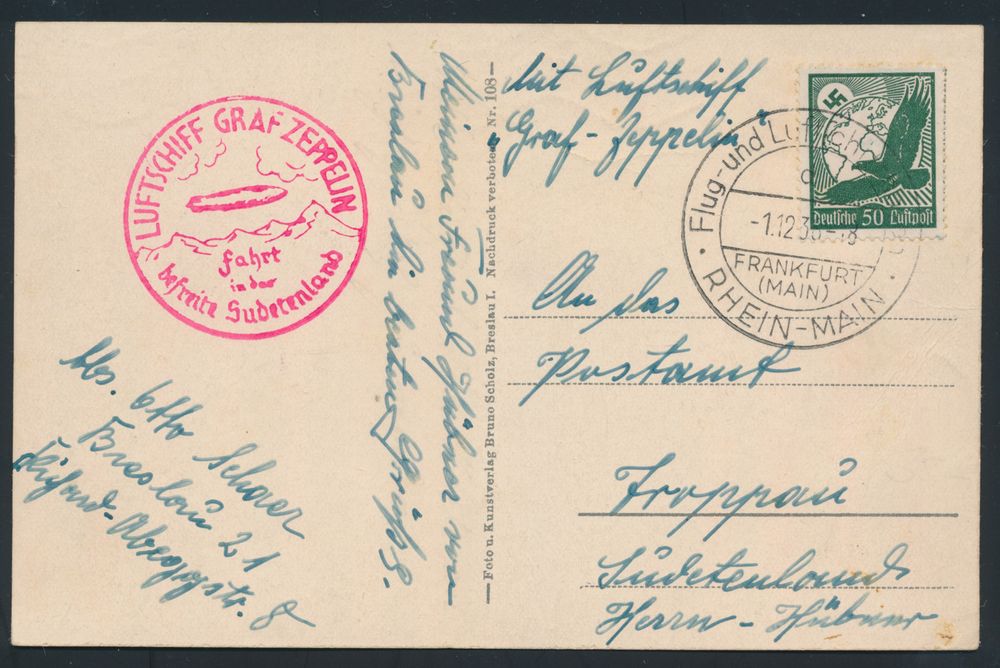 LUFTSCHIFF GRAF ZEPPELIN
fahrt
in das
befreite Sudetenland
Abs. Otto Scharer
Breslau 21
Richard-Abeggstr. 8
Meinem Freund Hübner von
Breslau die besten Grüße.
Foto u. Kunstverlag Bruno Scholz, Breslau I. Nachdruck verboten Nr. 108
Mit Luftschiff
"Graf-Zeppelin"
An das
Postamt
Troppau
Sudetenland
Herrn - Hübner
Deutsche 50 Luftpost
Flug- und Luft
-1.12.38-18
FRANKFURT
(MAIN)
RHEIN-MAIN